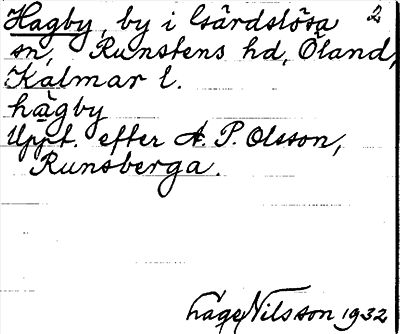 Hagby, by i Gärdslösa 2
sn, Runstens hd, Öland,
Kalmar l.
hàgby
Uppt. efter A. P. Olsson,
Runsberga.
Lage Nilsson 1932